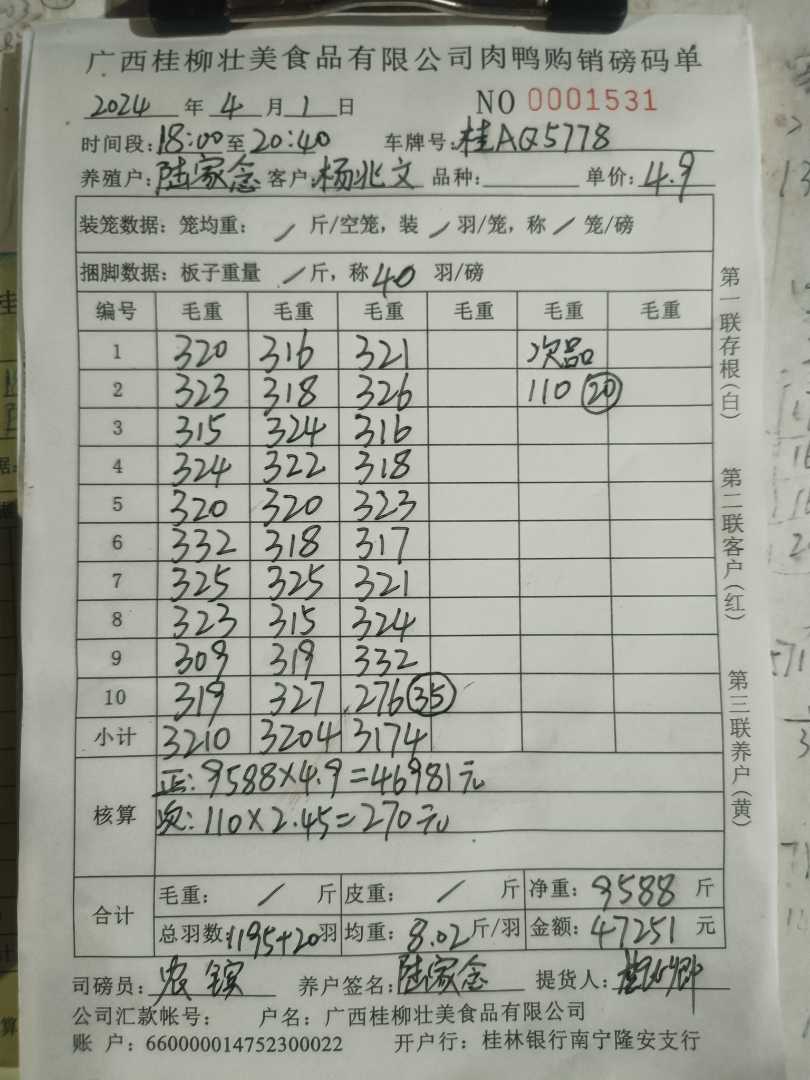 广西桂柳壮美食品有限公司肉鸭购销磅码单
2024 年 4 月 1 日 NO 0001531
时间段: 18:00 至 20:40 车牌号: 桂AQ5778
养殖户: 陆家念 客户: 杨兆文 品种: 单价: 4.9
装笼数据: 笼均重: / 斤/空笼, 装 / 羽/笼, 称 / 笼/磅
捆脚数据: 板子重量 / 斤, 称 40 羽/磅
编号 毛重 毛重 毛重 毛重 毛重 毛重
1 320 316 321 次品
2 323 318 326 110 20
3 315 324 316
4 324 322 318
5 320 320 323
6 332 318 317
7 325 325 321
8 323 315 324
9 309 319 332
10 319 327 276 35
小计 3210 3204 3174
核算 正: 9588×4.9=46981元
次: 110×2.45=270元
合计 毛重: / 斤 皮重: / 斤 净重: 9588 斤
总羽数: 1195+20 羽 均重: 8.02 斤/羽 金额: 47251 元
司磅员: 农 养户签名: 陆家念 提货人:
公司汇款帐号: 户名: 广西桂柳壮美食品有限公司
账 户: 660000014752300022 开户行: 桂林银行南宁隆安支行
第一联存根(白)
第二联客户(红)
第三联养户(黄)